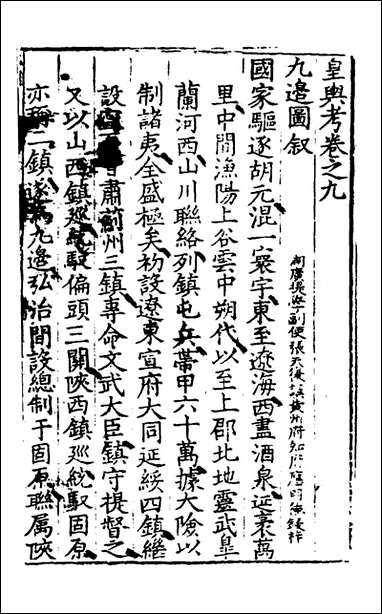 皇輿考卷之九
九邉圖叙
湖廣提學副使張天復 黃州府知府
國家驅逐胡元混一寰宇東至遼海西盡酒泉延袤萬
里中間漁陽上谷雲中朔代以至上郡北地靈武皐
蘭河西山川聯絡列鎮屯兵帶甲六十萬據大險以
制諸夷全盛極矣初設遼東宣府大同延綏四鎮繼
設寧夏甘肅薊州三鎮專命文武大臣鎮守提督之
又以山西鎮廵統馭偏頭三關陜西鎮廵統馭固原
亦稱二鎮遂為九邉弘治間設總制于固原聯属陜